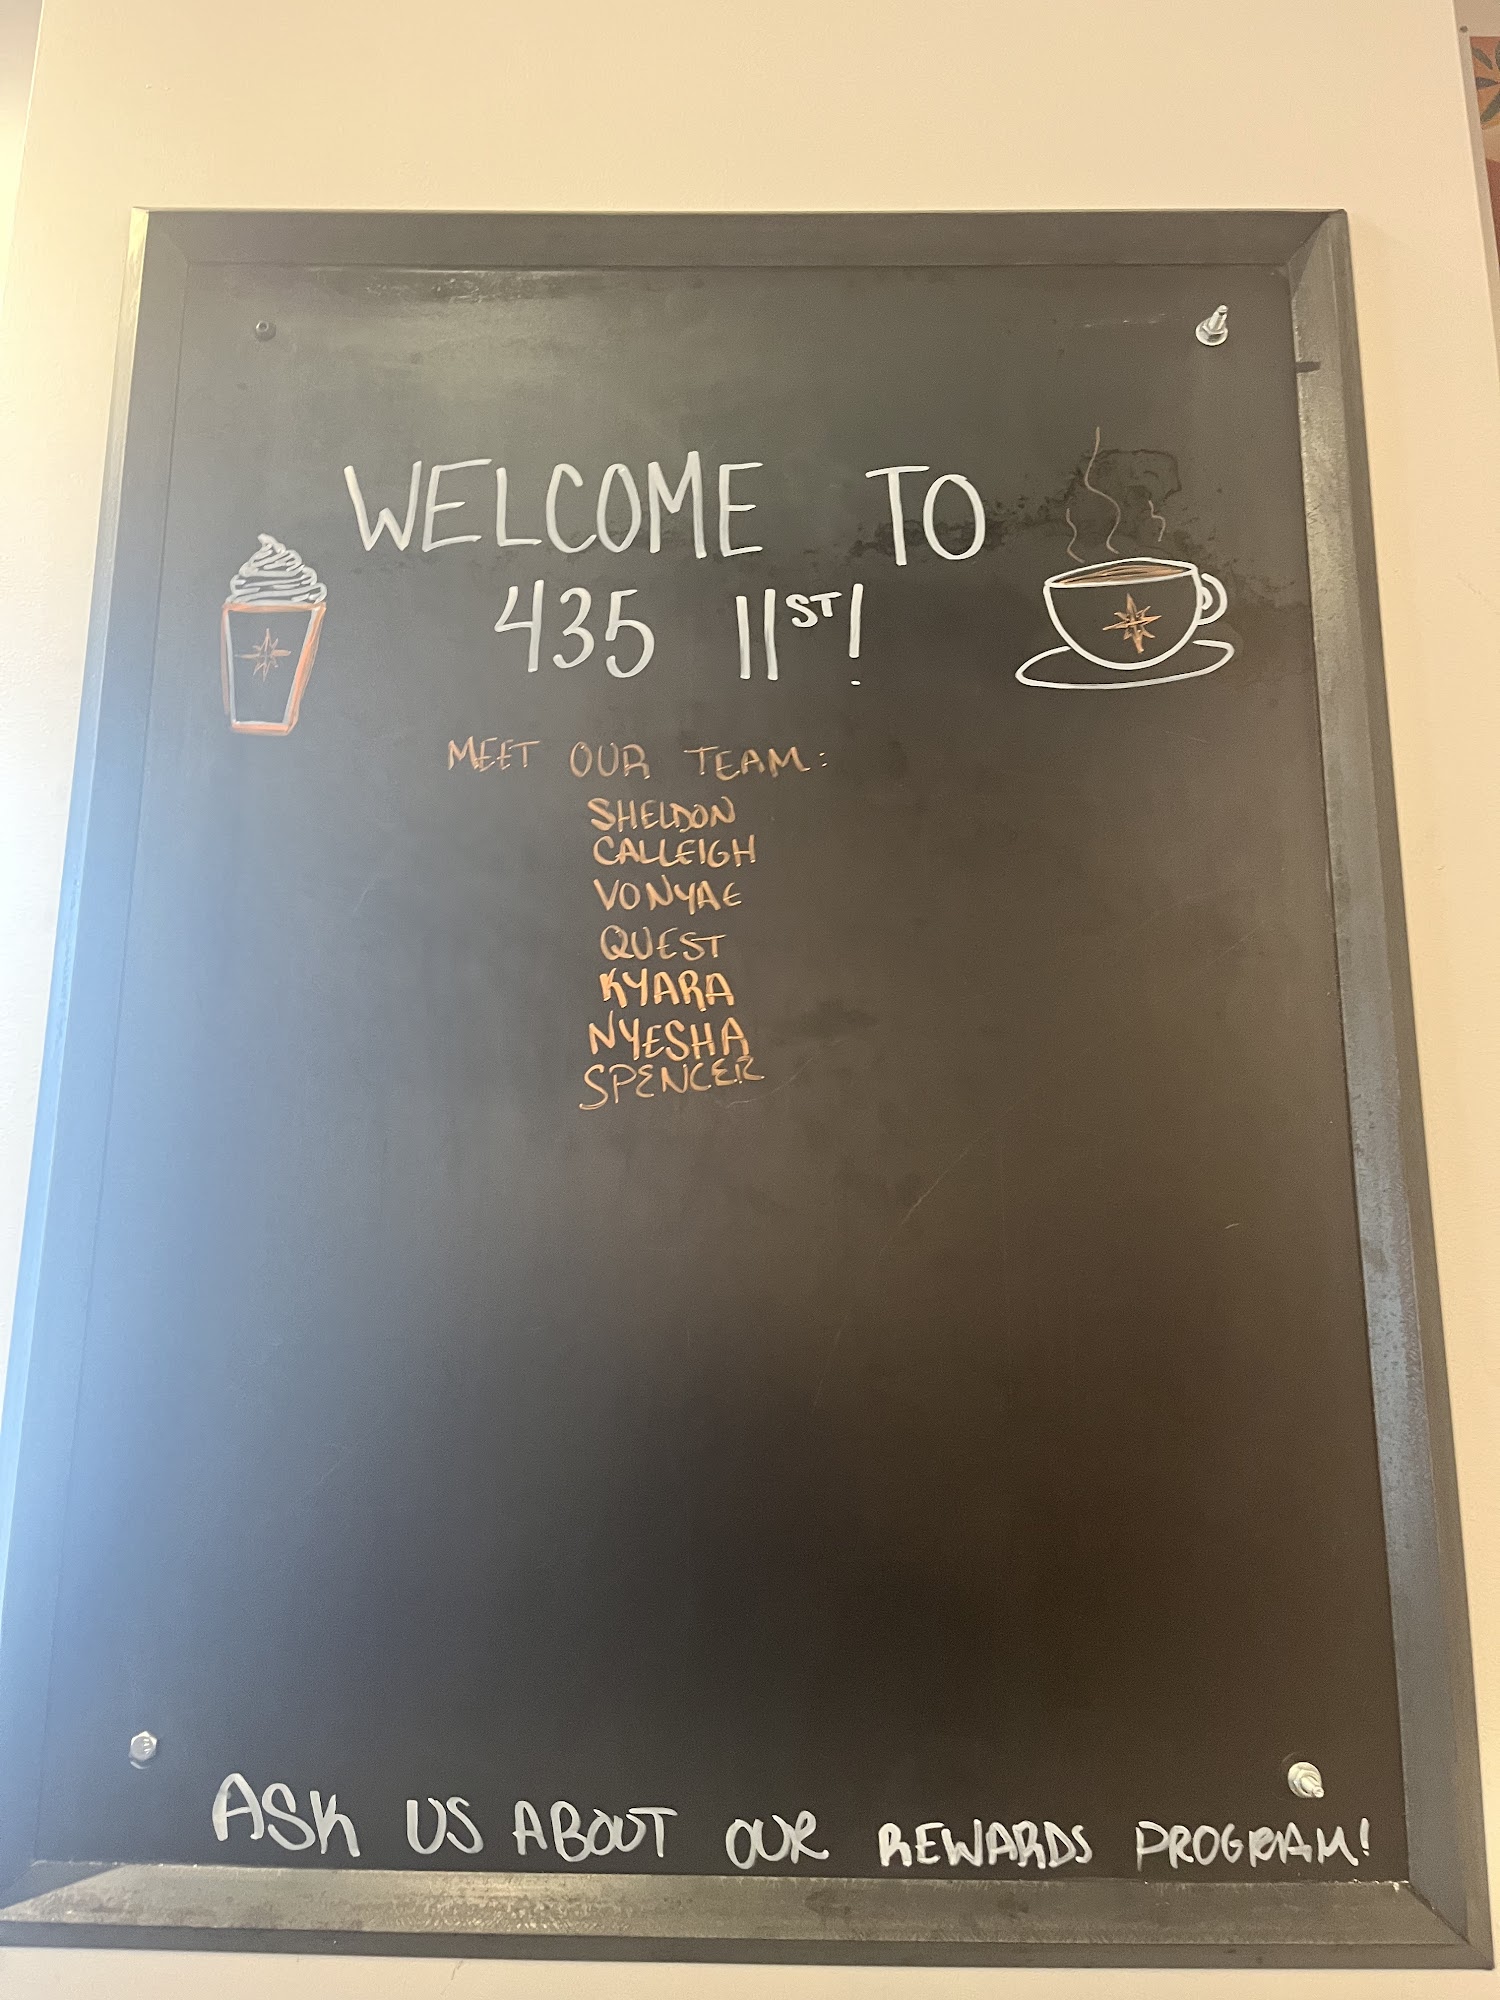 WELCOME TO
435 11ST!
MEET OUR TEAM:
SHELDON
CALLEIGH
VONYAE
QUEST
KYARA
NYESHA
SPENCER
ASK US ABOUT OUR REWARDS PROGRAM!